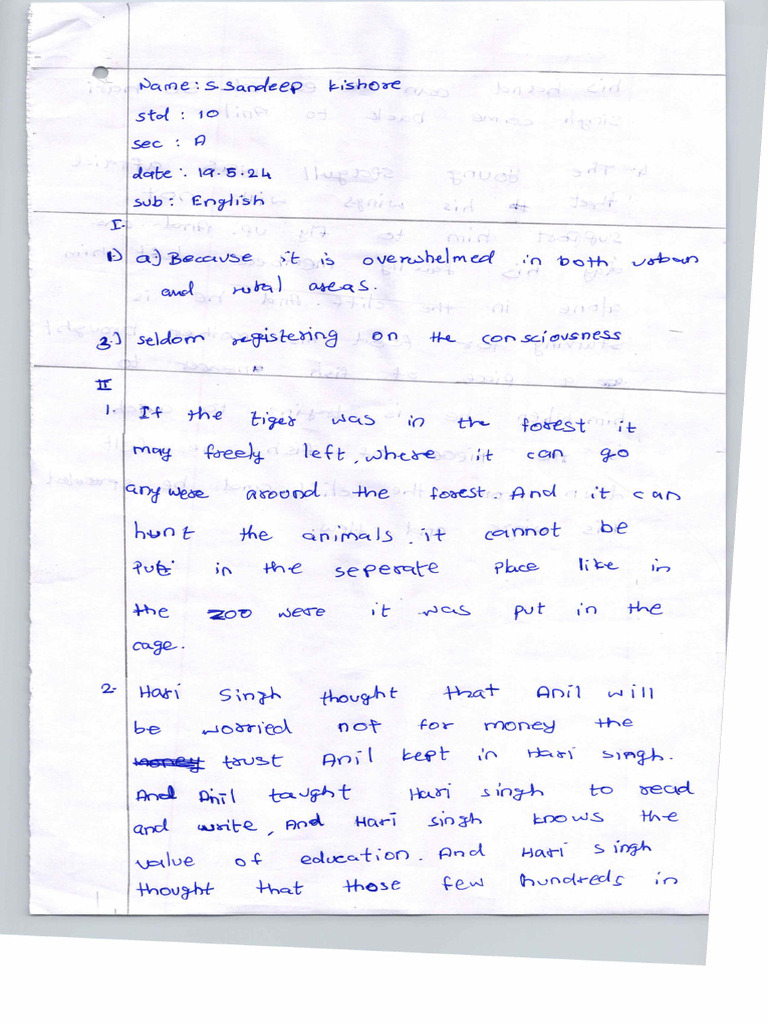 Name: S Sandeep Kishore
std : 10
sec : A
date : 19.5.24
sub : English
I.
1.) a) Because it is overwhelmed in both urban
and rural areas.
3.) seldom registering on the consciousness
II
1. If the tiger was in the forest it
may freely left, where it can go
any were around the forest. And it can
hunt the animals. it cannot be
put in the seperate place like in
the zoo were it was put in the
cage.
2. Hari Singh thought that Anil will
be worried not for money the
money trust Anil kept in Hari singh.
And Anil taught Hari singh to read
and write, And Hari singh knows the
value of education. And Hari singh
thought that those few hundreds in